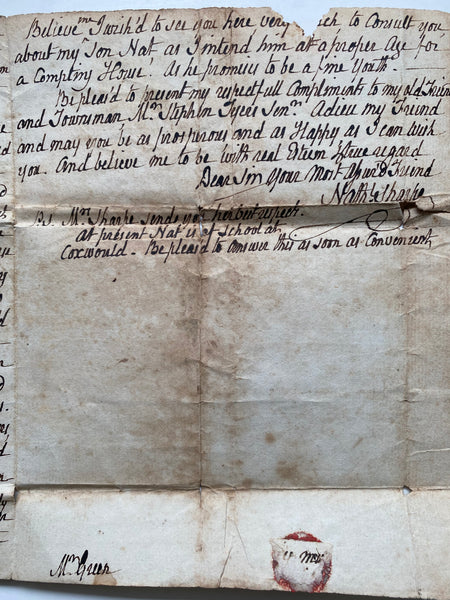 Believe me I wish'd to see you here very much to Consult you
about my Son Nat as I intend him at a proper Age for
a Compting House! As he promises to be a fine Youth
Be pleas'd to present my respectfull Complements to my old Friend
and Townsman Mr. Stephen Senr. Adieu my Friend
and may you be as prosperous and as Happy as I can wish
you. And believe me to be with real Esteem & true regard
Dear Sir Your Most Friend
Nathl. Sharpe
Ps. Mrs. Sharpe sends you her best respects.
at present Nat is at School at
Coxwould. Be pleas'd to answer this as soon as Convenient,
Mr. Green